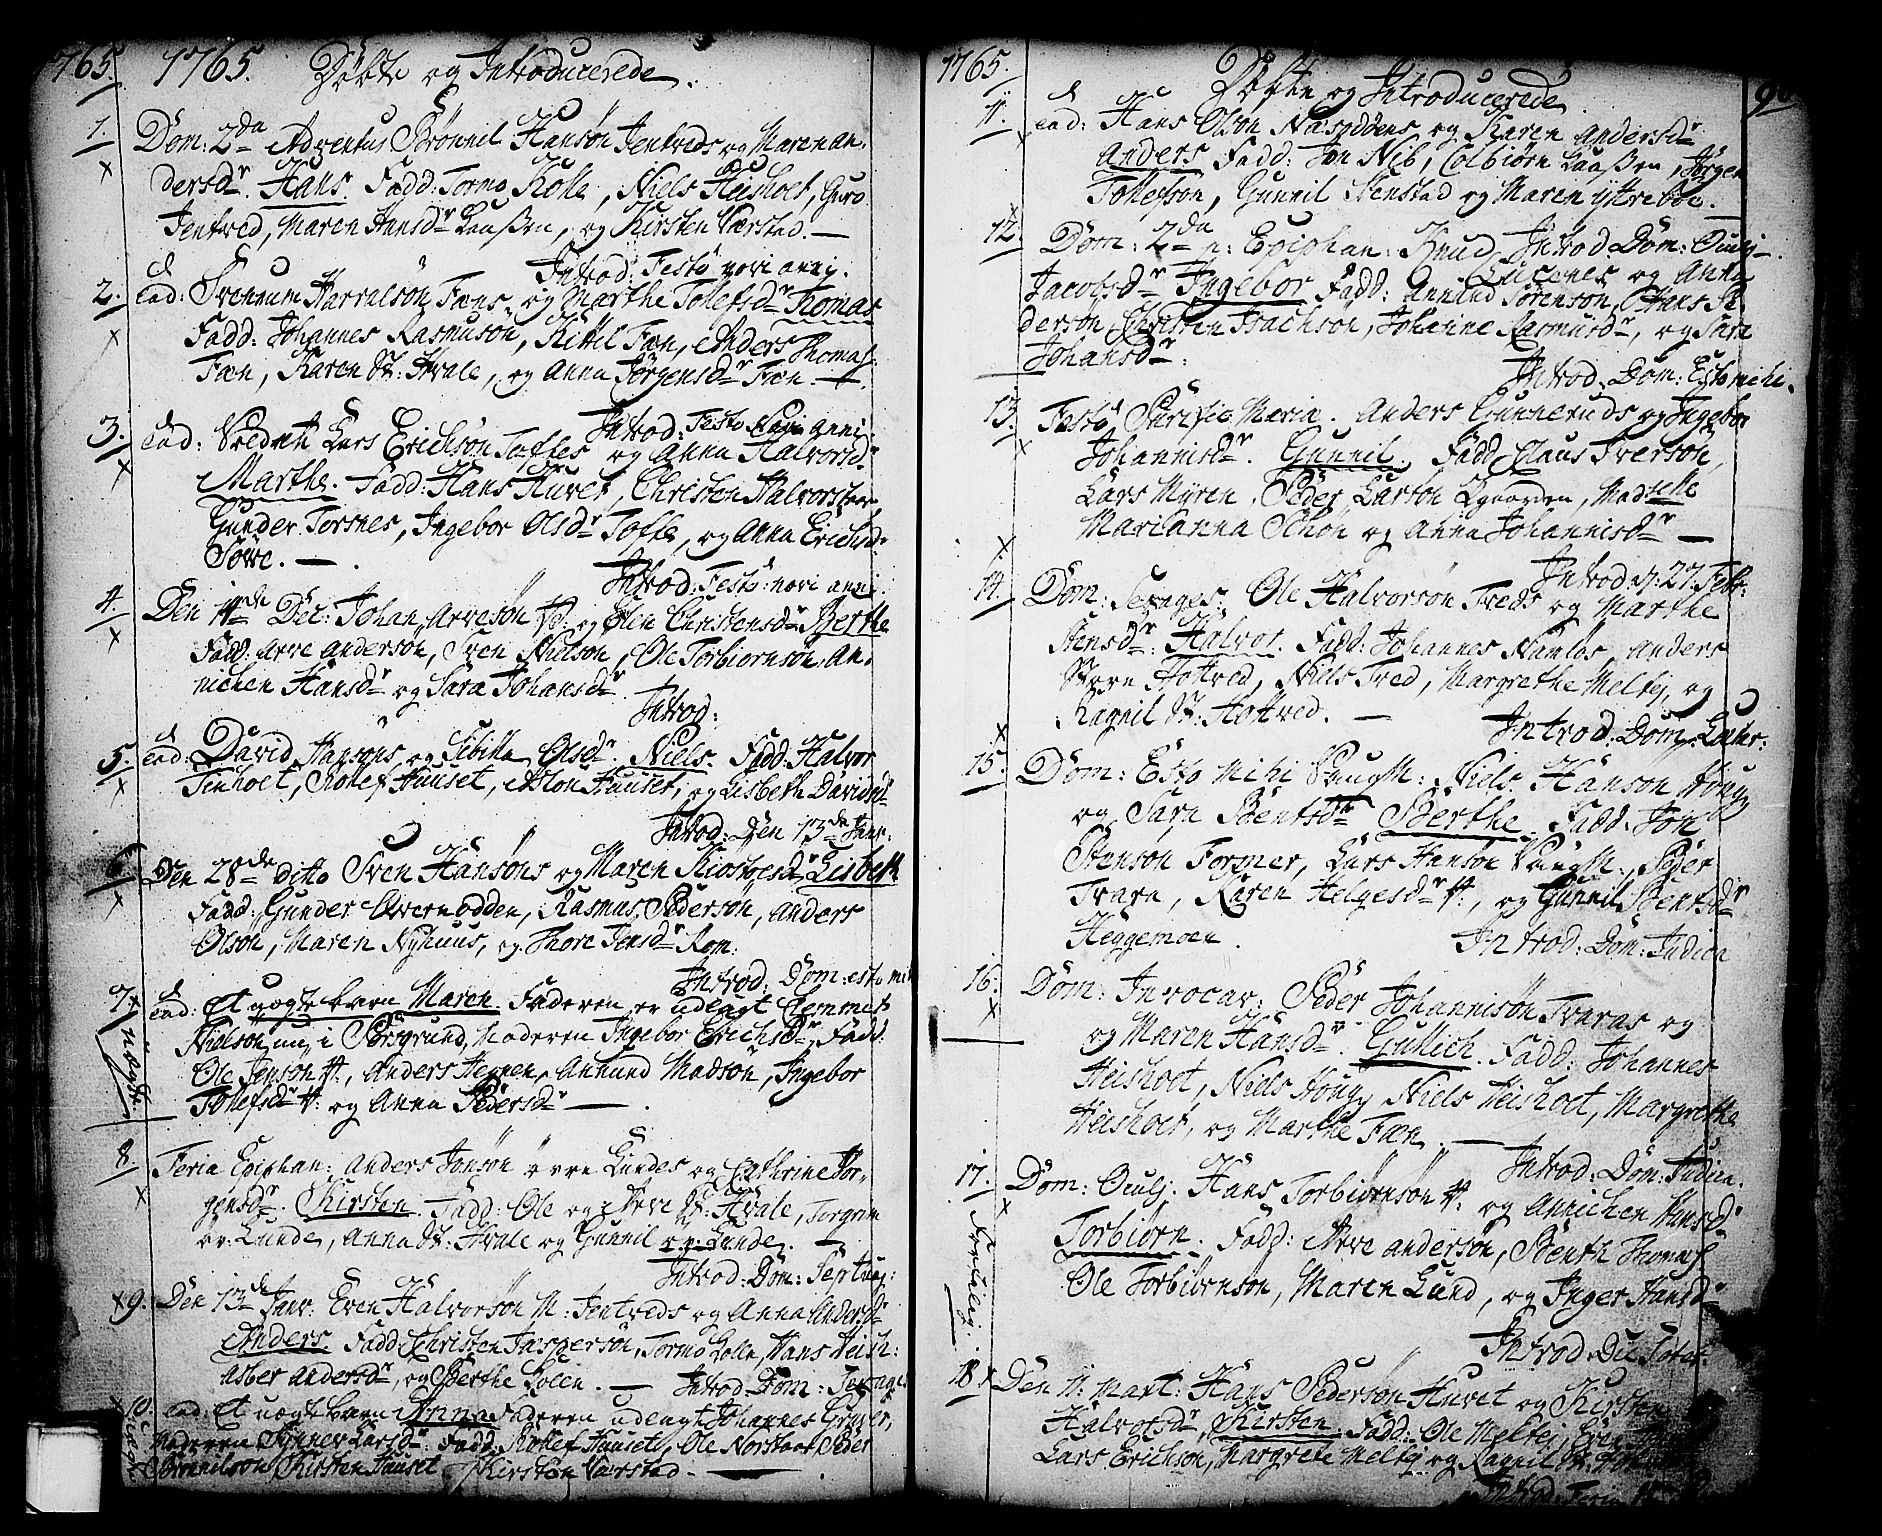 1765. 1765. Döbte og Introducerede.
1. Dom: 2da Adventus Brönnil Hansön Jentveds og Maren An-
dersdr. Hans. Fadd: Tormo Kolle, Niels Heisholt, Guro
Jentved, Maren Hansdr Laaßen, og Kirsten Værstad. —
Introd: Festo novi anni.
2. ead: Svenum Harvalsön Fæns, og Marthe Tollefsdr Thomas
Fadd: Johannes Rasmusön, Kittil Fæn, Anders Thomas:
Fæn, Karen St: Hvale, og Anna Jörgensdr Fæn —
Introd: Festo Novi anni.
3. ead: Lars Erichsön Toffes og Anna Halvorsd:
Marthe. Fadd: Hans Huvet, Christen Halvorsen
Gunder Torsnes, Ingebor Olsdr Toffe, og Anna Erichsd:
Sove. —
Introd: Festo: novi anni.
4. Den 14de Dec: Johan Arvesön V: og Elin Christensdr Berthe
Fadd: Arve Andersön, Sven Nielsön, Ole Torbiörnsön, An-
nichen Hansdr og Sara Johansdr.
Introd:
5. ead: David Hansöns og Sibille Olsdr. Niels. Fadd: Halvor
Tinhoet, Rollef Hauset, Aslon Hauset, og Lisbeth Davidsd:
Introd: Den 13de Janv:
6. Den 28de ditto Sven Hansöns og Maren Lisbeth
Fadd: Gunder Overnödden, Rasmus Pederson, Anders
Olson, Maren Nyhuus, og Thore Jensdr Rom.
Introd: Dom: esto mihi
7. ead: Et uægte barn Maren. Faderen er udlagt Clemmet
Nielson nu i Porsgrund, Moderen Ingebor Erichsdr, Fadd:
Ole Jenson V:, Anders Heyen, Annund Madson, Ingebor
Tollefsdr V: og Anna Pedersdr —
uægte.
8. Feria Epiphan: Anders Jonsön övre Lundes og Cathrine Jör-
gensdr. Kirsten. Fadd: Ole og Arve St: Hvale, Torgrim
öv: Lunde, Anna St: Hvale og Gunnil öv: Lunde. —
Introd: Dom: Septuag:
9. Den 13de Janv: Even Halvorsön M: Jentveds og Anna Andersd:
Anders. Fadd: Christen Jaspersön, Tormo Kolle, Hans Heish:
Asber Andersdr, og Berthe Foeen. — Introd: Dom: Sexages
10. ead: Et uægte barn Anne. Faderen udlagt Johannes
Moderen Synnev Larsdr. Fadd: Rollef Hauset, Ole Norstad, Peder
Brönnilson, Kirsten Hauset, Kirsten Værstad. —
1765. Döbte og Introducerede
11. ead: Hans Olson Næsgdöens og Karen Andersdr
Anders. Fadd: Jon Nib, Colbiörn Laaßen, Jörgen
Tollefson, Gunnil Stenstad og Maren Ytreböe.
12. Dom: 2da p: Epiphan: Knud Introd: Dom: Oculj.
og Anne
Jacobsdr Ingebor Fadd: Annund Sörensön, Hans
derson, Christen Isachson, Johanne Rasmusdr, og Sara
Johansdr.
Introd: Dom: Esto mihi.
13. Festo Purific: Mariæ. Anders Gunneruds og Ingebor
Johannisdr. Gunnil. Fadd: Claus Iverson,
Lars Myren, Peder Larson Madselle
Marianna Schon og Anna Johannisdr —
Introd: d: 27. Febr:
14. Dom: Sexages: Ole Halvorsön Treds og Marthe
Stensdr. Halvor. Fadd: Johannes Namlos, Anders
Hotved, Niels Tred, Margrethe Meltej, og
Ragnil St: Hotved. —
Introd: Dom: Lætar:
15. Dom: Esto Mihi Niels Hanson Houg
og Sara Bentsdr Berthe. Fadd: Jon
Stenson Former, Lars Hanson Peder
Tvara, Karen Helgesdr V:, og Gunnil Bentsdr
Heggemoen. Introd: Dom: Judica
16. Dom: Invocav: Peder Johannisön Tvaras og
og Maren Hansdr. Gullich. Fadd: Johannes
Heishoet, Niels Houg, Niels Heishoet, Margrethe
Heishoet, og Marthe Fæn. —
Introd: Dom: Judica.
17. Dom: Oculj. Hans Torbiörnsön V: og Annichen Hansd:
Torbiörn. Fadd: Arve Anderson, Benth Thomas:
Ole Torbiörnson, Maren Lund, og Inger Hansd:
Introd: Die Pasch.
18. Den 11. Mart: Hans Pederson Huvet og Kirsten
Halvorsdr, Kirsten. Fadd: Ole Meltej, Even
Lars Erichson, Margrete Meltej og Ragnil St:
Introd: Feria